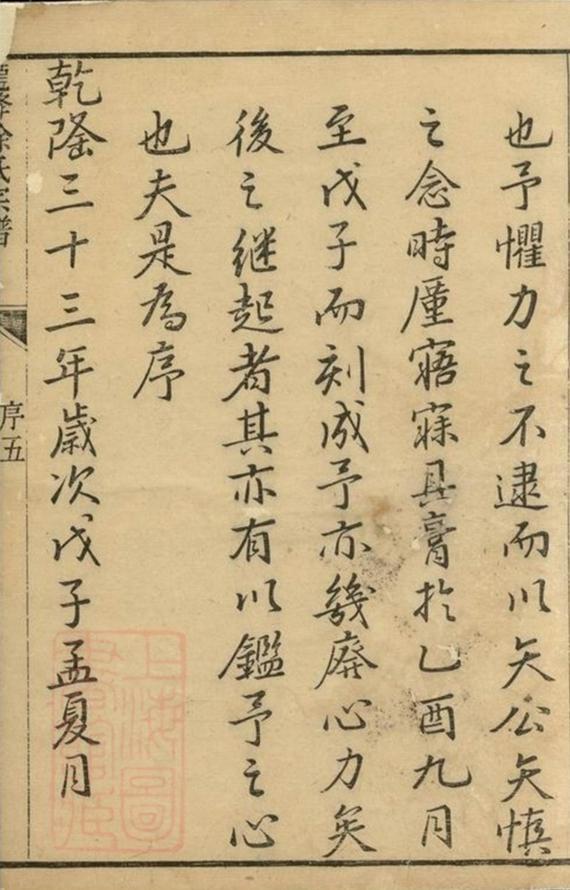 也予懼力之不逮而以矢公矢慎
之念時厪寤寐具膏於乙酉九月
至戊子而刻成予亦幾廢心力矣
後之継起者其亦有以鑑予之心
也夫是為序
乾隆三十三年歲次戊子孟夏月
徐氏宗譜
序五
上海圖書館藏